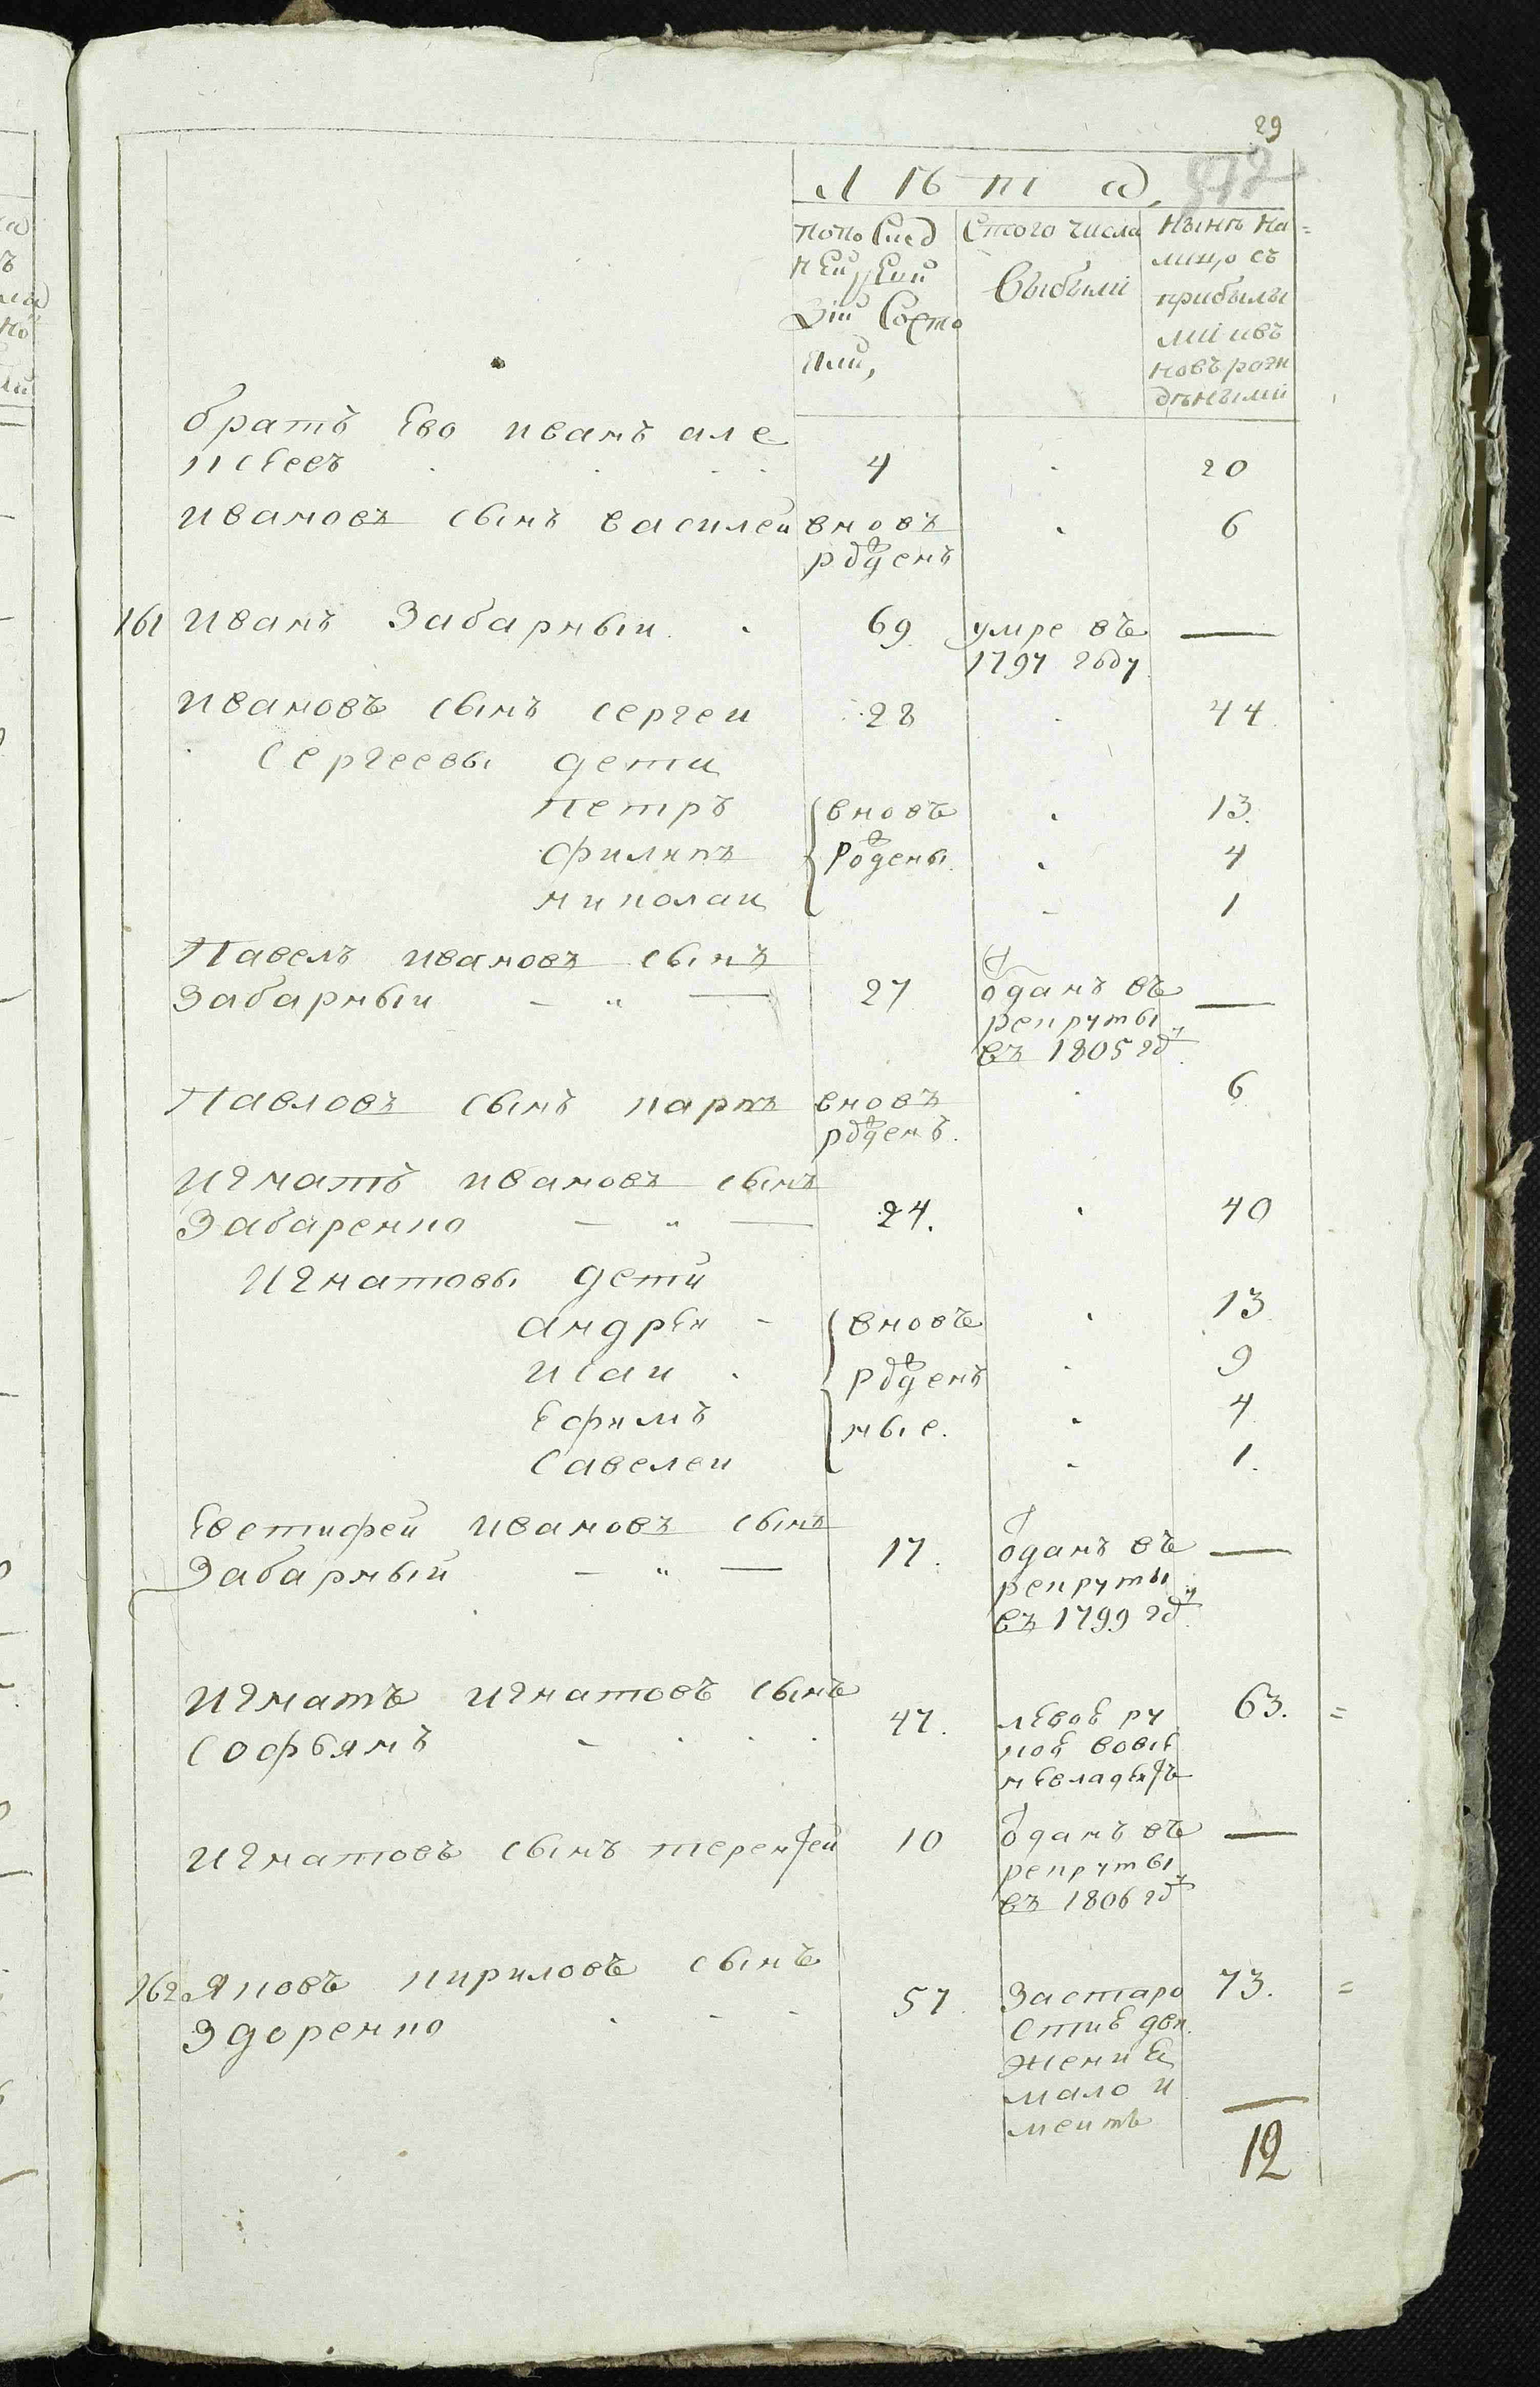 29
872
Лѣта
попослед
ней реви
зіи состо
яли,
Стого числа
выбыли
нынѣ на=
лицо съ
прибылы
ми ивъ
новь рожд
дѣнными
братъ Ево иванъ але
ксеевъ 4 20
ивановъ сынъ василеи вновъ 6
рожденъ
161 иванъ Забарныи 69 умре въ —
1797 году
ивановъ сынъ сергеи 28 44
Сергеевы дети
петръ вновъ 13.
филипъ рождены 4
николаи 1
Павелъ ивановъ сынъ
Забарныи 27 отданъ въ —
рекруты
въ 1805 году
Павловъ сынъ карпъ вновъ 6
рожденъ.
игнатъ ивановъ сынъ
Забаренко 24. 40
игнатовы дети
андрѣи вновъ 13
исаи рожден 9
Ефимъ ные. 4
Савелеи 1.
Евстифей ивановъ сынъ
Забарный 17. отданъ въ —
рекруты
въ 1799 году
игматъ игнатовъ сынъ
Софьянъ 47. лѣвоѣ ру 63. =
коѣ вовсѣ
нѣвладѣѣтъ
игнатовъ сынъ терентей 10 отданъ въ —
рекруты
въ 1806 году
162 Яковъ кириловъ сынъ
Здоренко 57. Застаро 73. =
стиѣ дви
жениѣ
мало и
меитъ
12